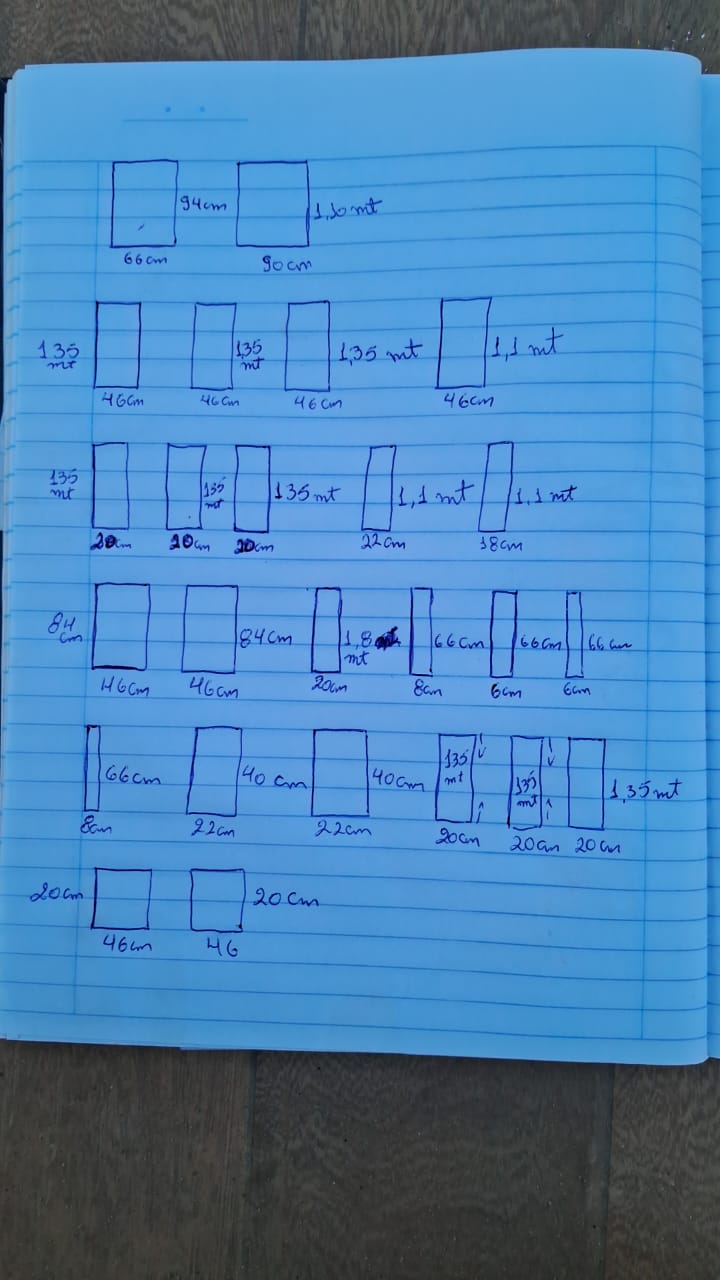 94cm 1,10 mt
66cm 90cm
135 mt 135 mt 1,35 mt 1,1 mt
46cm 46cm 46cm 46cm
135 mt 135 mt 135 mt 1,1 mt 1,1 mt
20cm 20cm 20cm 22cm 18cm
84 cm 84cm 1,8 mt 66cm 66cm 66cm
46cm 46cm 20cm 8cm 6cm 6cm
66cm 40 cm 40cm 135 mt 135 mt 1,35 mt
8cm 22cm 22cm 20cm 20cm 20cm
20cm 20cm
46cm 46